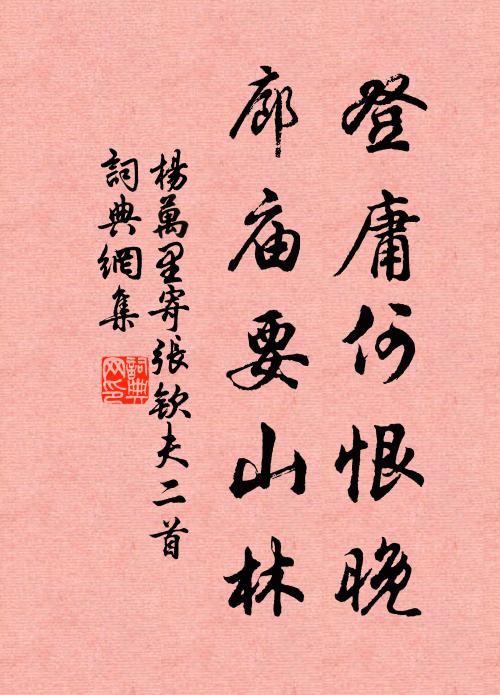 登庸何恨晚
廊庙要山林
楊萬里寄張欽夫二首
詞典網集
詞典網印